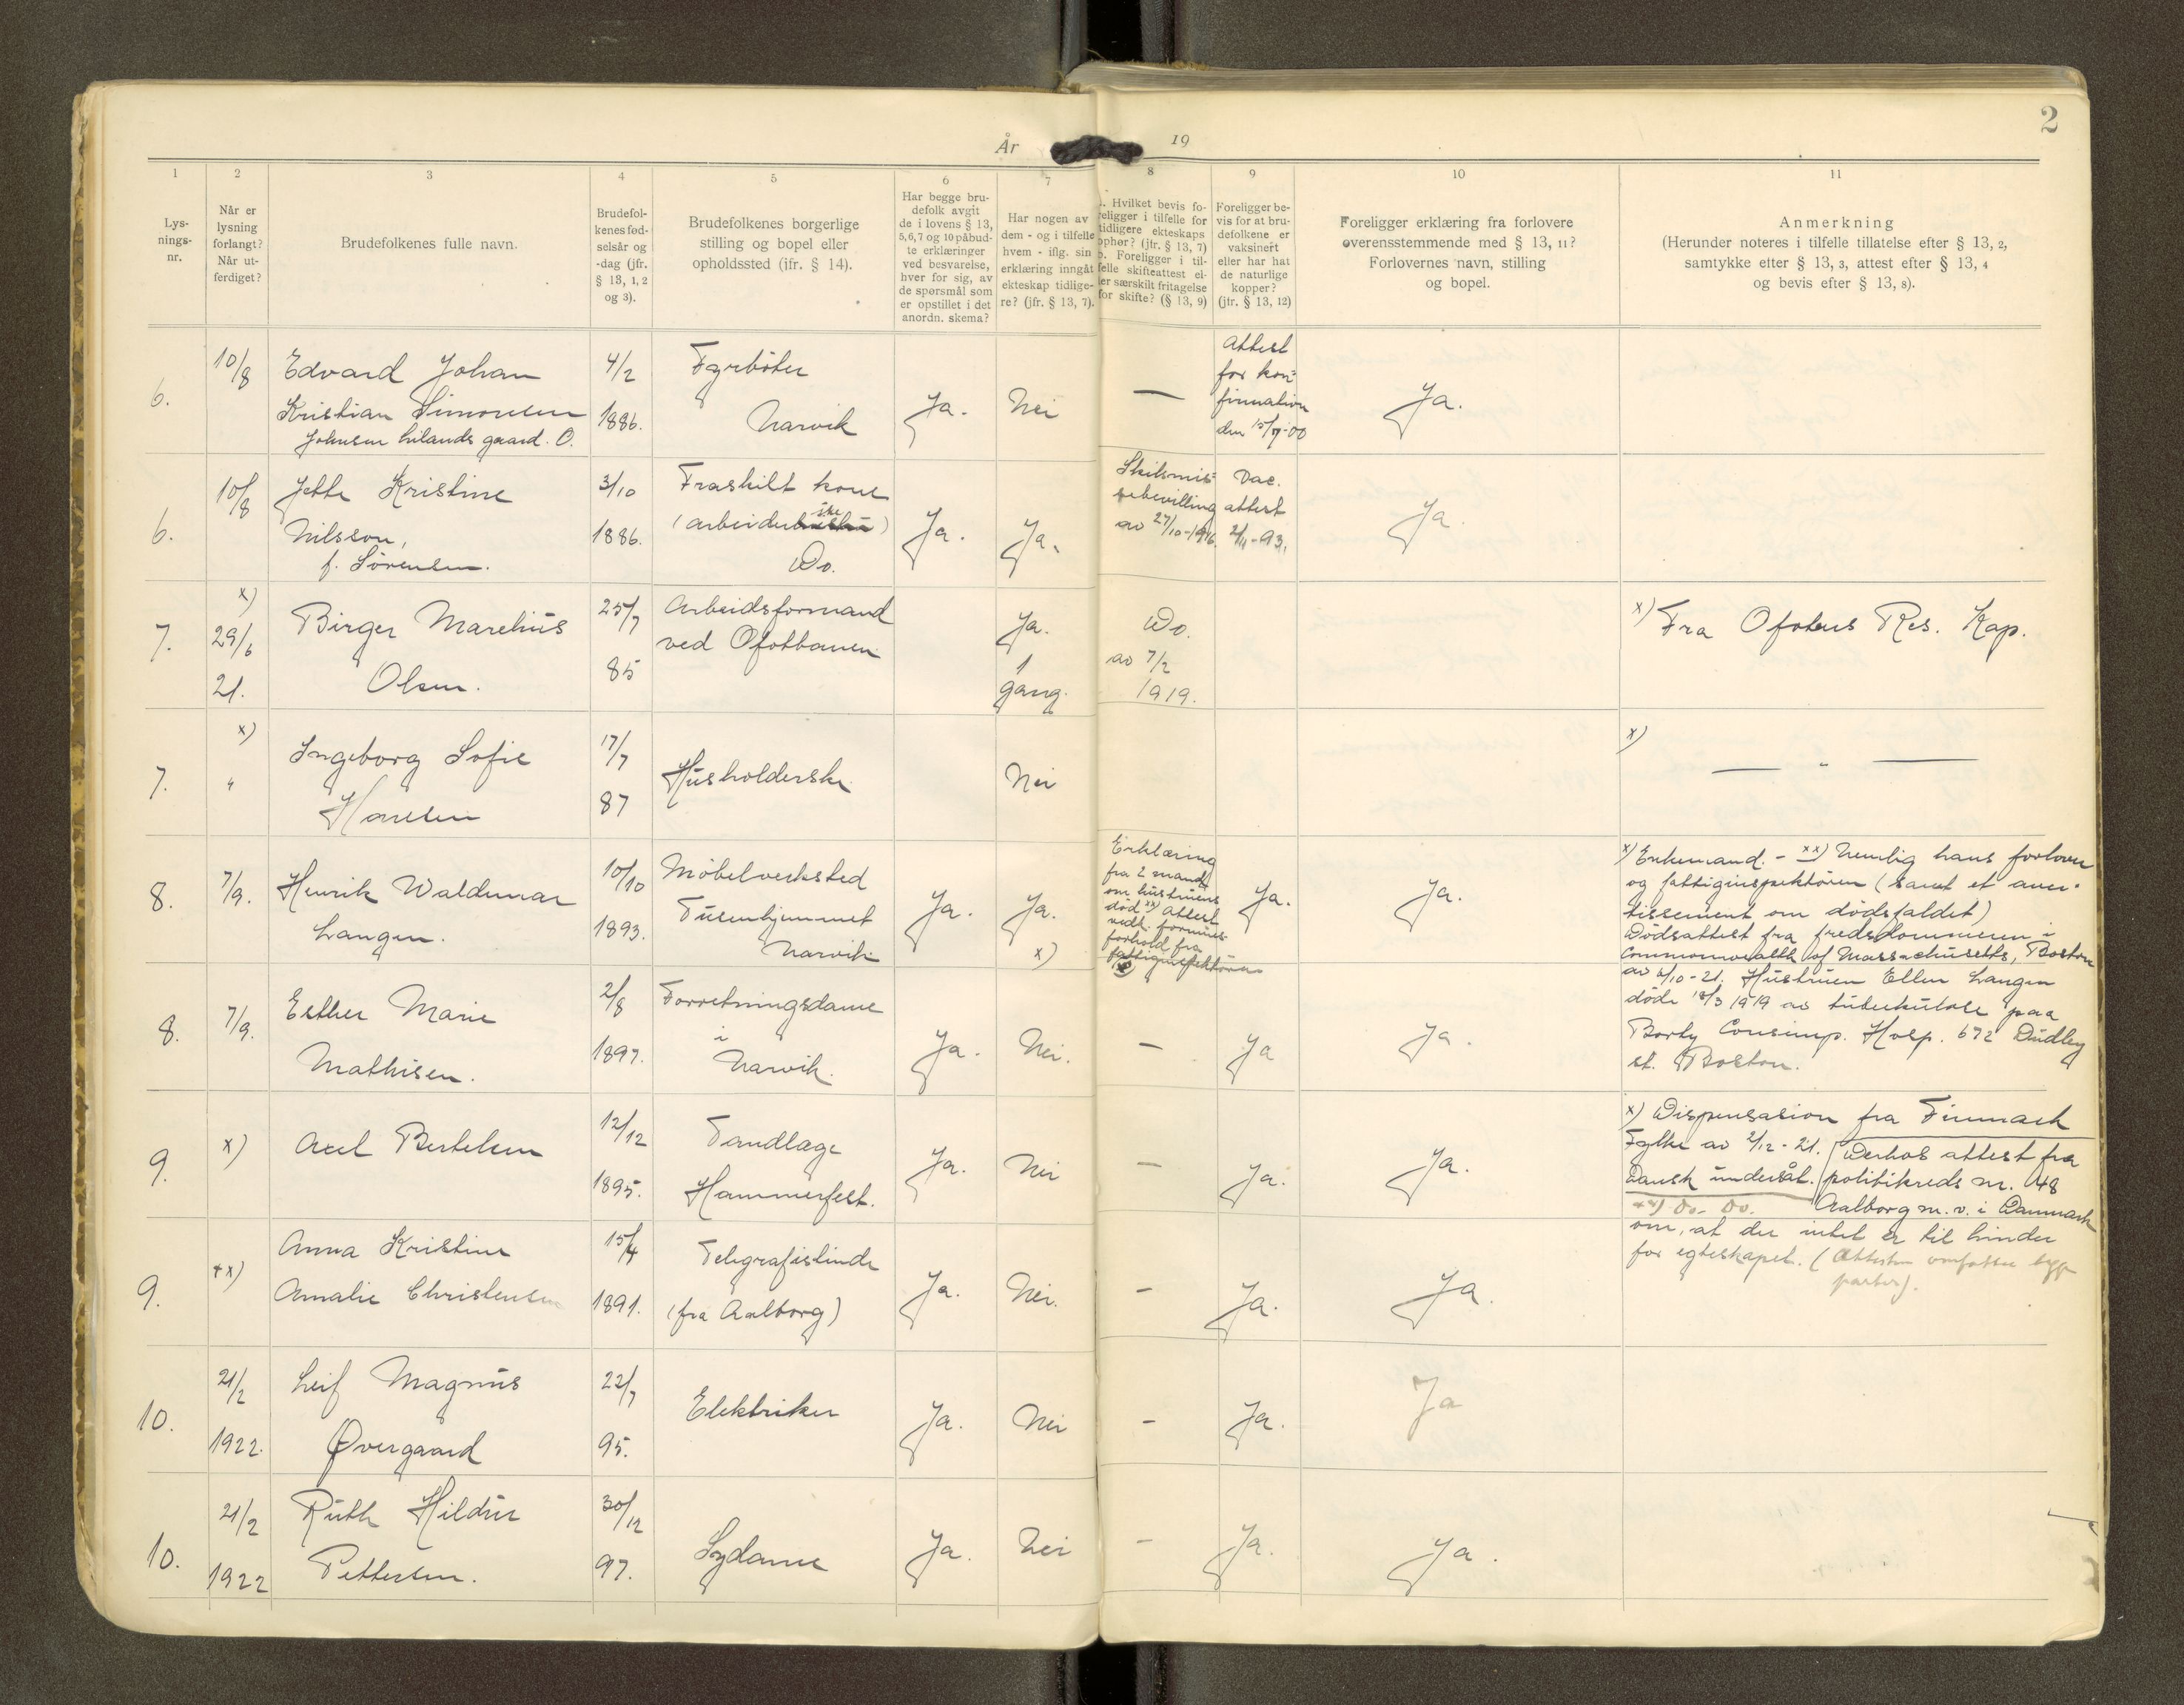 2
År 19
1 2 3 4 5 6 7 8 9 10 11
Lys-
nings-
nr.
Når er
lysning
forlangt?
Når ut-
ferdiget?
Brudefolkenes fulle navn.
Brudefol-
kenes fød-
selsår og
-dag (jfr.
§ 13, 1, 2
og 3).
Brudefolkenes borgerlige
stilling og bopel eller
opholdssted (jfr. § 14).
Har begge bru-
defolk avgit
de i lovens § 13,
5, 6, 7 og 10 påbud-
te erklæringer
ved besvarelse,
hver for sig, av
de spørsmål som
er opstillet i det
anordn. skema?
Har nogen av
dem - og i tilfelle
hvem - iflg. sin
erklæring inngåt
ekteskap tidlige-
re? (jfr. § 13, 7).
Hvilket bevis fo-
religger i tilfelle for
tidligere ekteskaps
ophør? (jfr. § 13, 7)
b. Foreligger i til-
felle skifteattest el-
ler særskilt fritagelse
for skifte? (§ 13, 9)
Foreligger be-
vis for at bru-
defolkene er
vaksinert
eller har hat
de naturlige
kopper?
(jfr. § 13, 12)
Foreligger erklæring fra forlovere
overensstemmende med § 13, 11?
Forlovernes navn, stilling
og bopel.
Anmerkning
(Herunder noteres i tilfelle tillatelse efter § 13, 2,
samtykke efter § 13, 3, attest efter § 13, 4
og bevis efter § 13, 8).
6.
10/8
Edvard Johan
Kristian Simonsen
Johnsen
4/2
1886.
Fyrbøter
Narvik
Ja.
Nei
—
Attest
for kon-
firmation
den 15/7-00
Ja.
6.
10/8
Jette Kristine
Nilsson,
f. Sörensen.
3/10
1886.
Fraskilt kone
(arbeiderske)
Do.
Ja.
Ja.
Skilsmis-
sebevilling
av 27/10-1916.
Vac.
attest
2/11-93.
Ja.
7.
x)
29/6
21.
Birger Marelius
Olsen.
25/7
85
Arbeidsformand
ved Ofotbanen
Ja.
1
gang.
Do.
av 7/2
1919.
x) Fra Ofotens Res. Kap.
7.
x)
"
Ingeborg Sofie
Hansen
17/7
87
Husholderske
Nei
x)
— " —
8.
7/9.
Henrik Waldemar
Langen.
10/10
1893.
Möbelverksted
Tusenhjemmet
Narvik
Ja.
Ja.
x)
Erklæring
fra 2 mand
om hustruens
död xx) Attest
vedk. formues-
forhold fra
fattiginspektören
Ja.
Ja.
x) Enkemand. - xx) Nemlig hans forlover
og fattiginspektören (samt et aver-
tissement om dödsfaldet)
Dödsattest fra fredsdommeren i
Commonwealth of Massachusetts, Boston
av 6/10-21. Hustruen Ellen Langen
döde 18/3 1919 av tuberkulose paa
Consump. Hosp. 672 Dudley
st. Boston.
8.
7/9.
Esther Marie
Mathisen.
2/8
1897.
Forretningsdame
i
Narvik.
Ja.
Nei.
—
Ja
Ja.
9.
x)
Axel Bertelsen
12/12
1895.
Tandlæge
Hammerfest.
Ja.
Nei
—
Ja.
Ja.
x) Dispensasion fra Finmark
Fylke av 2/12-21.
Dansk undersåt.
Derhos attest fra
politikreds nr. 48
xx) Do. Do. Aalborg m. v. i Danmark
om, at der intet er til hinder
for egteskapet. (Attesten omfatter begge
parter).
9.
xx)
Anna Kristine
Amalie Christensen
15/4
1891.
Telegrafistinde
(fra Aalborg)
Ja.
Nei.
-
Ja.
Ja.
10.
21/2
1922.
Leif Magnus
Øvergaard
22/7
95.
Elektriker
Ja.
Nei
-
Ja.
Ja
10.
21/2
1922
Ruth Hildur
Pettersen.
30/12
97.
Sydame
Ja.
Nei
-
Ja.
Ja.